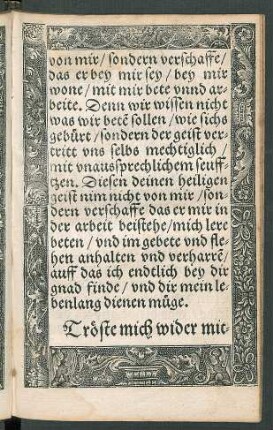 von mir / sondern verschaffe /
das er bey mir sey / bey mir
wone / mit mir bete vnnd ar-
beite. Denn wir wissen nicht
was wir betē sollen / wie sichs
gebürt / sondern der geist ver-
tritt vns selbs mechtiglich /
mit vnaussprechlichem seuff-
tzen. Diesen deinen heiligen
geist nim nicht von mir / son-
dern verschaffe das er mir in
der arbeit beistehe / mich lere
beten / vnd im gebete vnd fle-
hen anhalten vnd verharrē /
auff das ich endtlich bey dir
gnad finde / vnd dir mein le-
benlang dienen müge.
Tröste mich wider mit